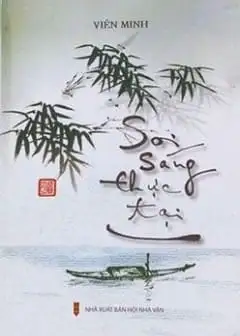 VIÊN MINH
Soi
sáng
thực
tại
NHÀ XUẤT BẢN HỘI NHÀ VĂN